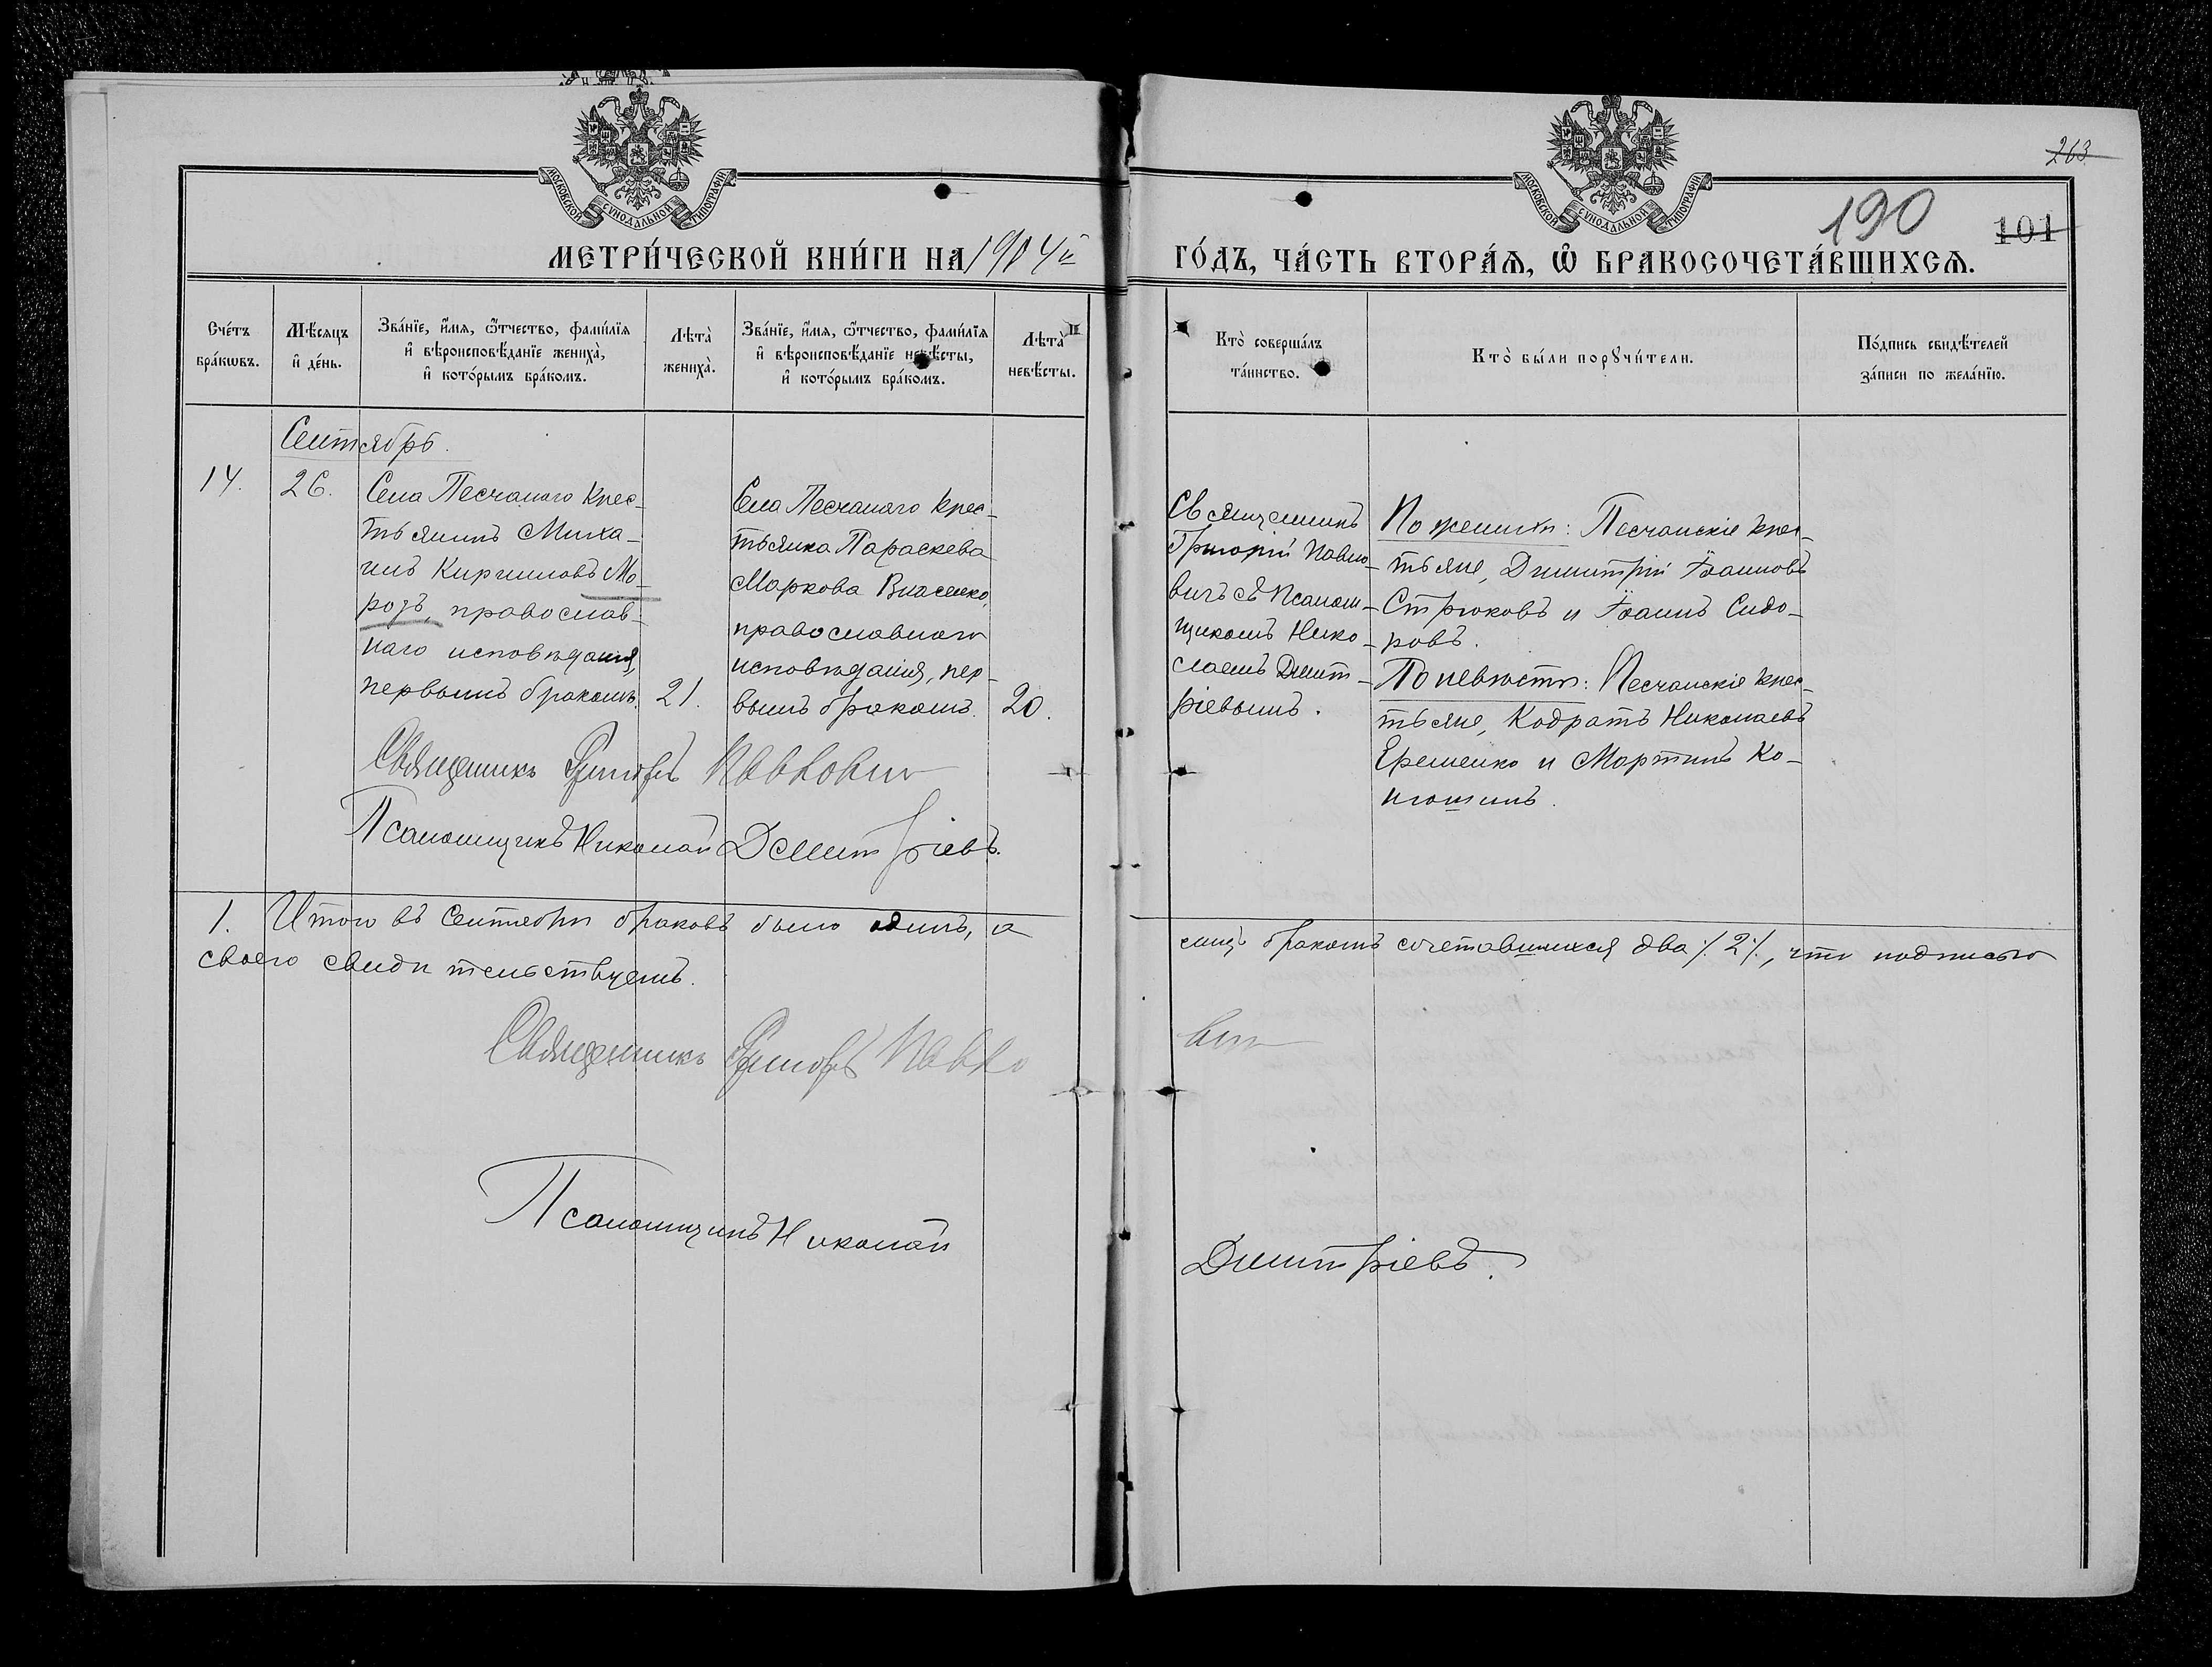 263
190
101
МОСКОВСКОЙ СѴНОДАЛЬНОЙ ТИПОГРАФІИ
МОСКОВСКОЙ СѴНОДАЛЬНОЙ ТИПОГРАФІИ
МЕТРИ́ЧЕСКОЙ КНИ́ГИ НА 1904й
ГО́ДЪ, ЧА́СТЬ ВТОРА́Ѧ, Ѡ҆ БРАКОСОЧЕТА́ВШИХСѦ.
Сче́тъ
бра́кѡвъ.
Мѣ́сяцъ
и҆ де́нь.
Зва́нїе, и҆́мѧ, ѻ҆́тчество, фами́лїѧ
и҆ вѣроисповѣ́данїе жениха̀,
и҆ кото́рымъ бра́комъ.
Лѣта̀
жениха̀.
Зва́нїе, и҆́мѧ, ѻ҆́тчество, фами́лїѧ
и҆ вѣроисповѣ́данїе невѣ́сты,
и҆ кото́рымъ бра́комъ.
Лѣта̀
невѣ́сты.
Кто̀ соверша́лъ
та́инство.
Кто̀ бы́ли порꙋчи́тели.
По́дпись свидѣ́телей
за́писи по жела́нїю.
Сентябрь.
14.
26.
Села Песчанаго Крес-
тьянинъ Миха-
илъ Кирилловъ Мо-
розъ, православ-
наго исповѣданія,
первымъ бракомъ.
21.
Села Песчанаго крес-
тьянка Параскева
Маркова Власенко,
православнаго
исповѣданія, пер-
вымъ бракомъ.
20.
Священникъ
Григорій Павло-
вичъ съ Псалом-
щикомъ Нико-
лаемъ Дмит-
ріевымъ.
По женихѣ: Песчанскіе крес-
тьяне, Димитрій Іоанновъ
Стрюковъ и Іоаннъ Сидо-
ровъ.
По невѣстѣ: Песчанскіе крес-
тьяне, Кодратъ Николаевъ
Еременко и Мартинъ Ко-
Священникъ Григорій Павлович
Псаломщикъ Николай Дмитріевъ.
1. Итого въ Сентябрѣ браковъ было одинъ, а
лицъ бракомъ сочетавшихся два ⁒2⁒, что подписью
своею свидѣтельствуемъ.
Священникъ Григорій Павло
вич
Псаломщикъ Николай
Дмитріевъ.